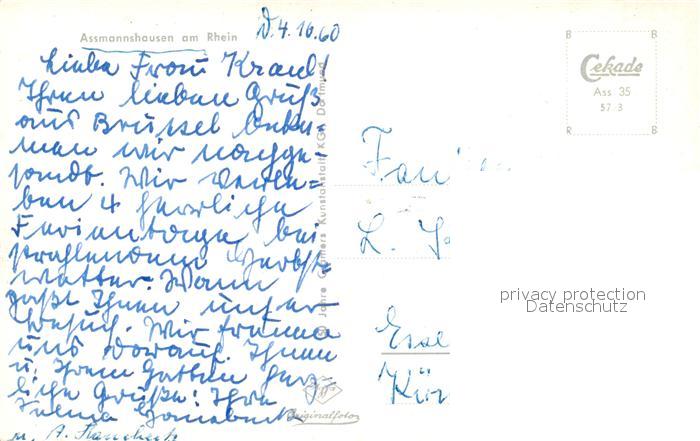 Assmannshausen am Rhein
D. 4.10.60
Liebe Frau
Ihren lieben Gruß
aus Brüssel beka-
men wir nachge-
sandt. Wir verle=
ben 4 herrliche
Ferientage bei
strahlendem Herbst-
wetter. Wann
paßt Ihnen unser
Besuch. Wir freuen
uns darauf. Ihnen
u. Ihrem Gatten herz-
liche Grüße: Ihre
u. A.
Jahre Cramers Kunstanstalt KGA Dortmund
Originalfoto
B B
Cekade
Ass 35
57 3
R B
Fam
L.
Esse
privacy protection
Datenschutz